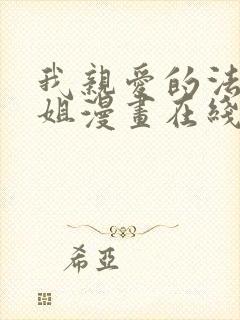 我親愛的法
姐漫畫在綫
希亞